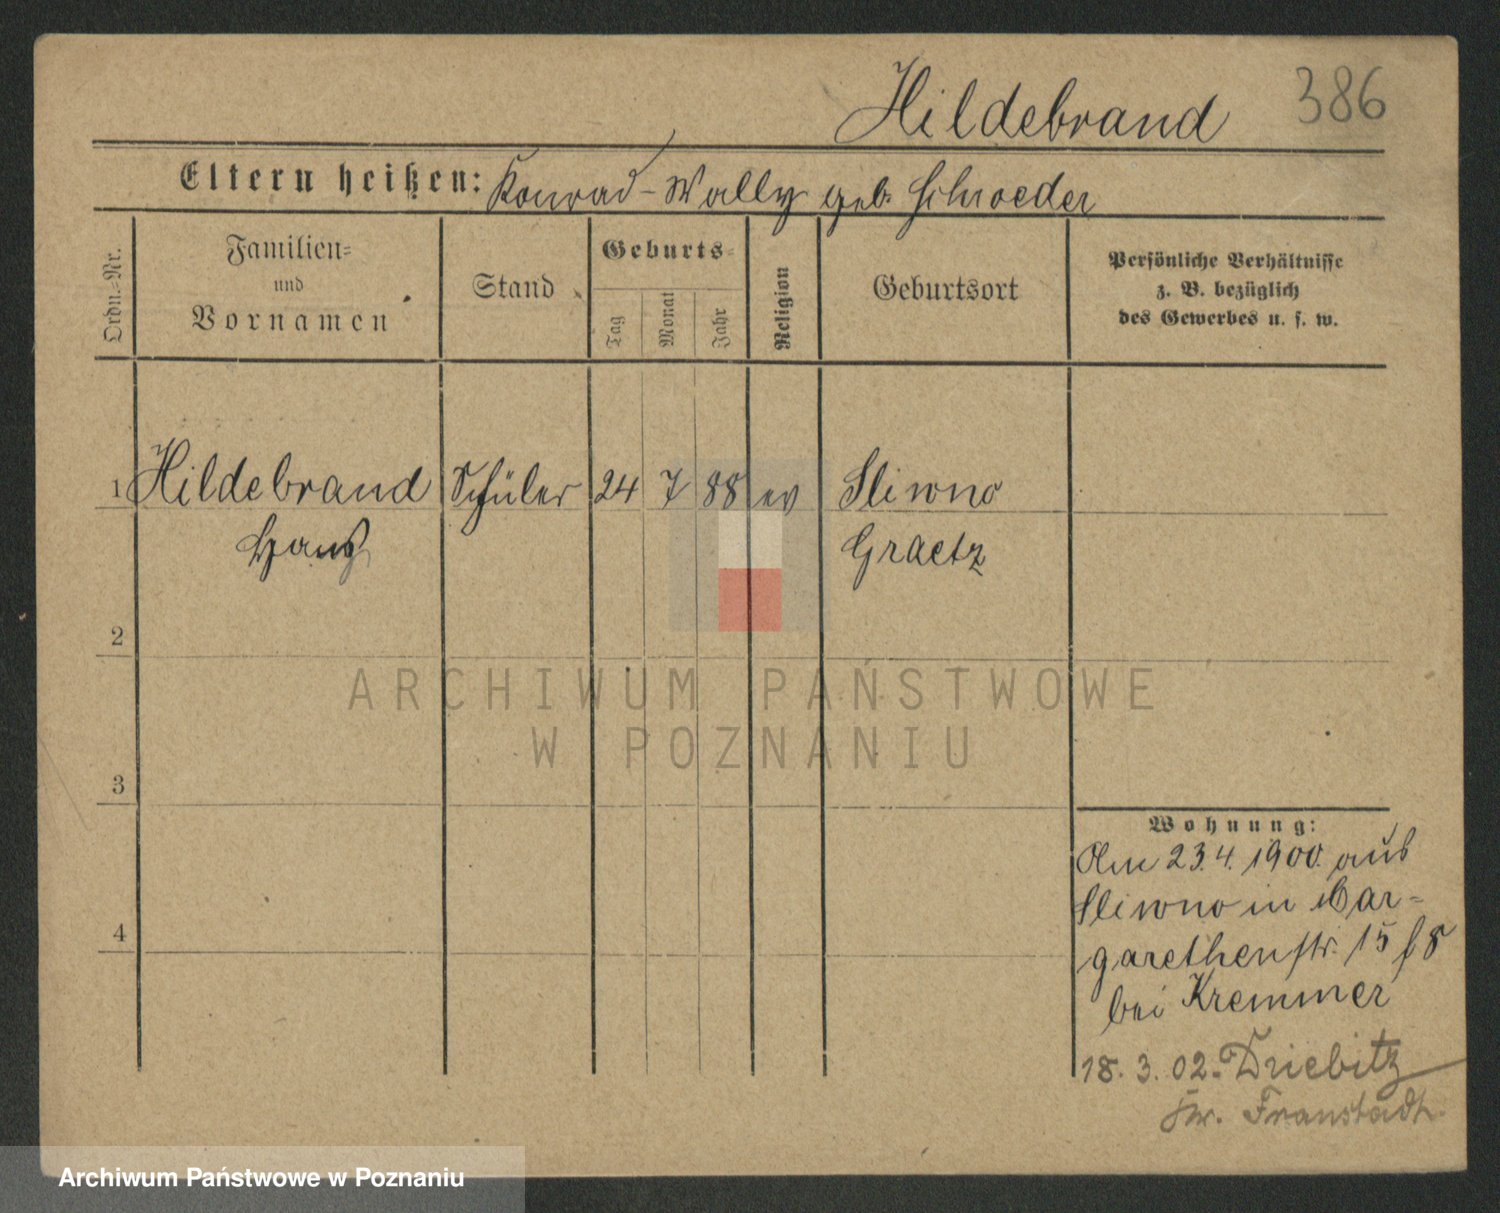 Hildebrand 386
Eltern heißen: Konrad - Wally geb. Schroeder
Ordn.-Nr. Familien- und Vornamen Stand Geburts- Tag Monat Jahr Religion Geburtsort Persönliche Verhältnisse z. B. bezüglich des Gewerbes u. s. w.
1 Hildebrand Schüler 24 7 88 ev Sliwno
Hans Graetz
2
3
4
Wohnung:
Am 23.4.1900. aus
Sliwno in Mar-
garethenstr. 15
bei Kremmer
18. 3. 02. Driebitz
Kr. Fraustadt.
ARCHIWUM PAŃSTWOWE
W POZNANIU
Archiwum Państwowe w Poznaniu